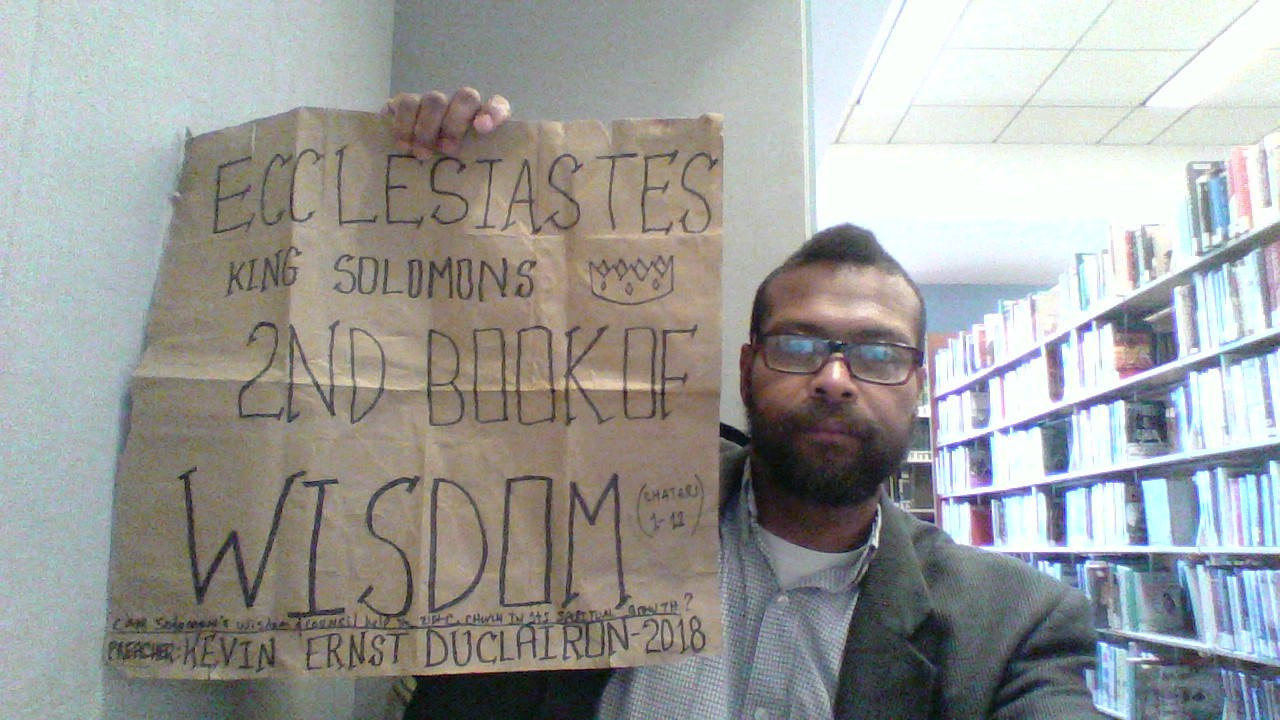 ECCLESIASTES
KING SOLOMONS
2ND BOOK OF
WISDOM
1-12
CAN SOLOMON'S WISDOM COUNCIL HELP CHURCH IN ITS GROWTH?
PREACHER: KEVIN ERNST DUCLAIRON-2018